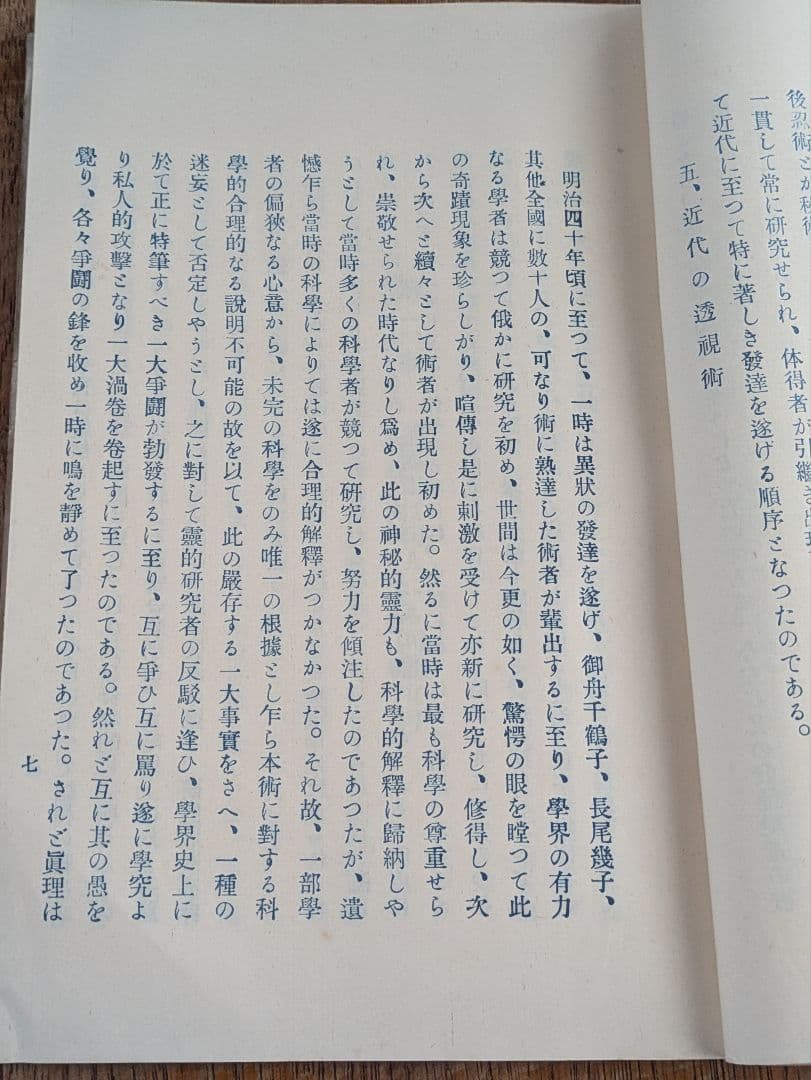 後忍術とか秘術
一貫して常に研究せられ、体得者が引繼き出
て近代に至つて特に著しき發達を遂げる順序となつたのである。
五、近代の透視術
明治四十年頃に至つて、一時は異狀の發達を遂げ、御舟千鶴子、長尾幾子、
其他全國に數十人の、可なり術に熟達した術者が輩出するに至り、學界の有力
なる學者は競つて俄かに研究を初め、世間は今更の如く、驚愕の眼を瞠つて此
の奇蹟現象を珍らしがり、喧傳し是に刺激を受けて亦新に研究し、修得し、次
から次へと續々として術者が出現し初めた。然るに當時は最も科學の尊重せら
れ、崇敬せられた時代なりし爲め、此の神秘的靈力も、科學的解釋に歸納しや
うとして當時多くの科學者が競つて研究し、努力を傾注したのであつたが、遺
憾乍ら當時の科學によりては遂に合理的解釋がつかなかつた。それ故、一部學
者の偏狹なる心意から、未完の科學をのみ唯一の根據とし乍ら本術に對する科
學的合理的なる說明不可能の故を以て、此の嚴存する一大事實をさへ、一種の
迷妄として否定しやうとし、之に對して靈的研究者の反駁に逢ひ、學界史上に
於て正に特筆すべき一大爭鬪が勃發するに至り、互に爭ひ互に罵り遂に學究よ
り私人的攻擊となり一大渦卷を卷起すに至つたのである。然れど互に其の愚を
覺り、各々爭鬪の鋒を收め一時に鳴を靜めて了つたのであつた。されど眞理は
七